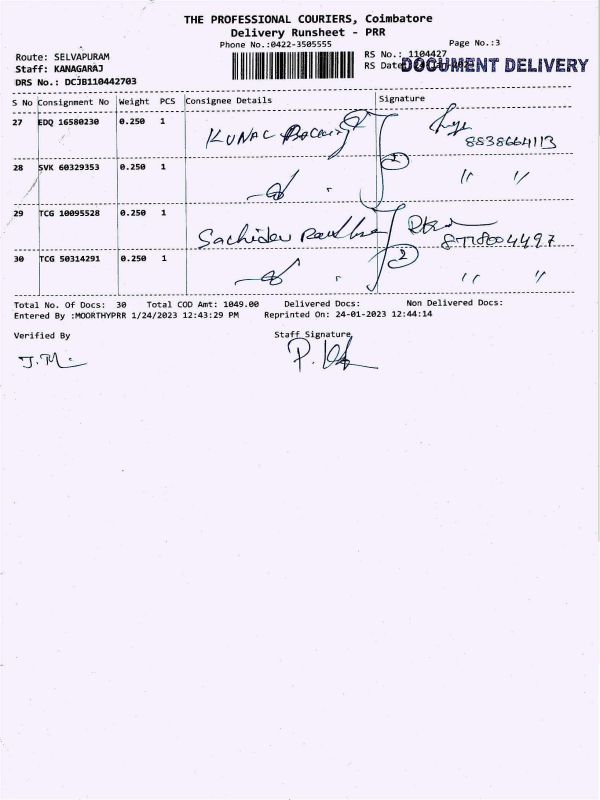 THE PROFESSIONAL COURIERS, Coimbatore
Delivery Runsheet - PRR
Phone No.:0422-3505555
Page No.:3
Route: SELVAPURAM
RS No.: 1104427
Staff: KANAGARAJ
RS Date
DOCUMENT DELIVERY
DRS No.: DCJB110442703
S No Consignment No Weight PCS Consignee Details Signature
27 EDQ 16580230 0.250 1 KUNAL
8838664113
28 SVK 60329353 0.250 1 2 " "
29 TCG 10095528 0.250 1 Sachidev
8778004497
30 TCG 50314291 0.250 1 2 " "
Total No. Of Docs: 30 Total COD Amt: 1049.00 Delivered Docs: Non Delivered Docs:
Entered By :MOORTHYPRR 1/24/2023 12:43:29 PM Reprinted On: 24-01-2023 12:44:14
Verified By Staff Signature
J.M.